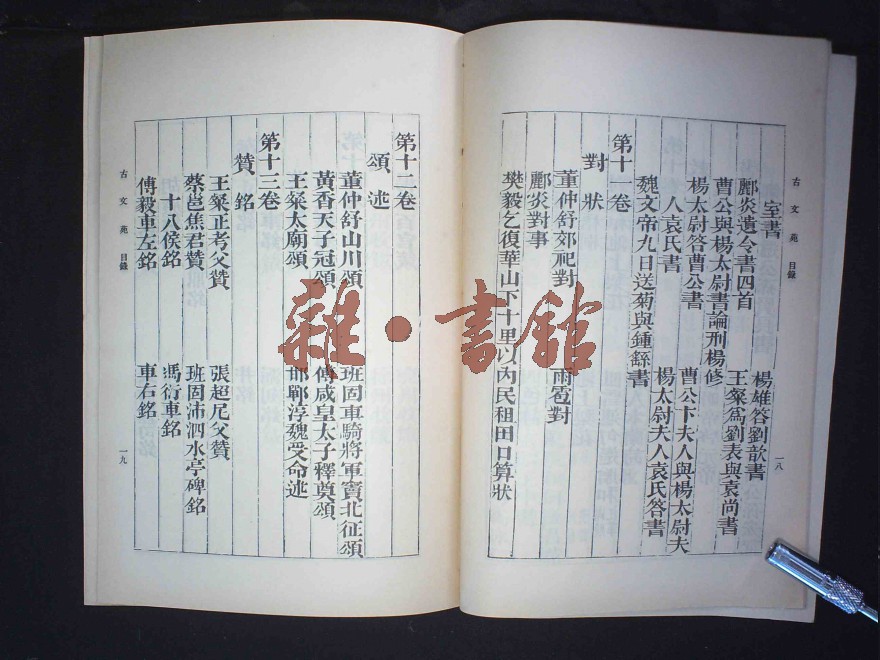 古文苑 目錄
一八
室書
楊雄答劉歆書
酈炎遺令書四首
王粲為劉表與袁尚書
曹公與楊太尉書論刑楊修
曹公卞夫人與楊太尉夫
人袁氏書
楊太尉答曹公書
楊太尉夫人袁氏答書
魏文帝九日送菊與鍾繇書
第十一卷
對狀
董仲舒郊祀對
雨雹對
酈炎對事
樊毅乞復華山下十里以內民租田口算狀
第十二卷
頌述
董仲舒山川頌
班固車騎將軍竇北征頌
黃香天子冠頌
傅咸皇太子釋奠頌
王粲太廟頌
邯鄲淳魏受命述
第十三卷
贊銘
王粲正考父贊
張超尼父贊
蔡邕焦君贊
班固沛泗水亭碑銘
十八侯銘
馮衍車銘
傅毅車左銘
車右銘
古文苑 目錄
一九
雜·書館